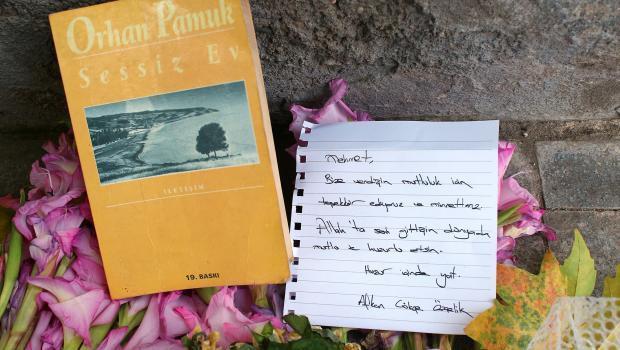 Orhan Pamuk
Sessiz Ev
İLETİŞİM
19. BASKI
Mehmet,
Bize verdiğin mutluluk için
teşekkür ediyoruz ve minnettarız.
Allah'ta seni gittiğin dünyanda
mutlu ve huzurlu etsin.
Huzur içinde yat.
Gökçe Özçelik